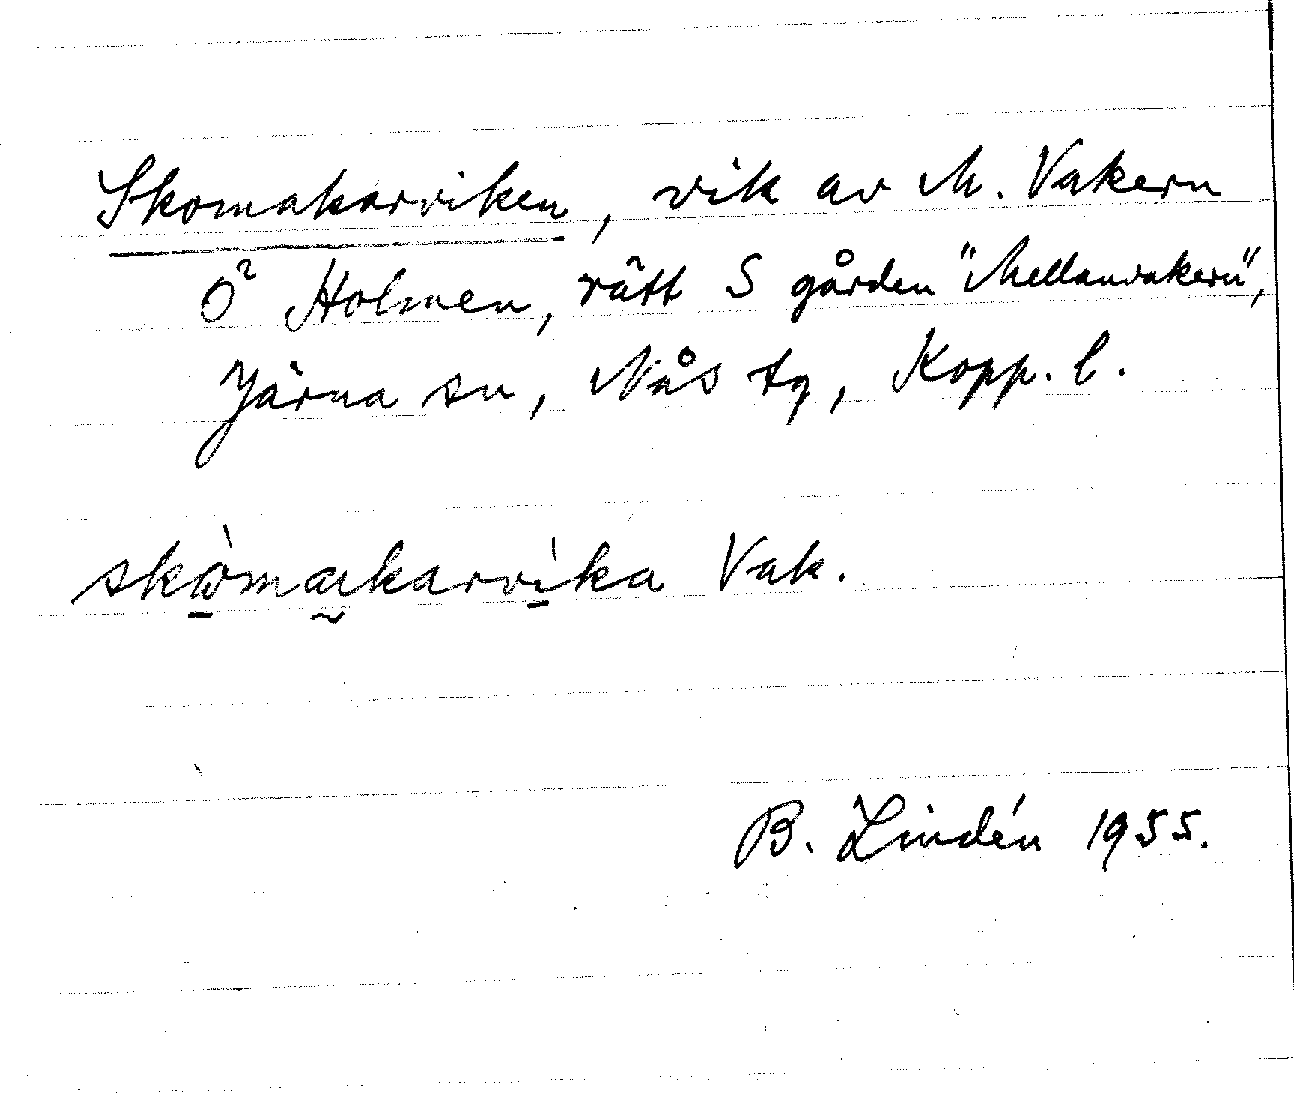 Skomakarviken, vik av M. Vakern
Ö Holmen, rätt S gården "Mellanvakern",
Järna sn, Nås tg, Kopp. l.
skòmakarvìka Vak.
B. Lindén 1955.